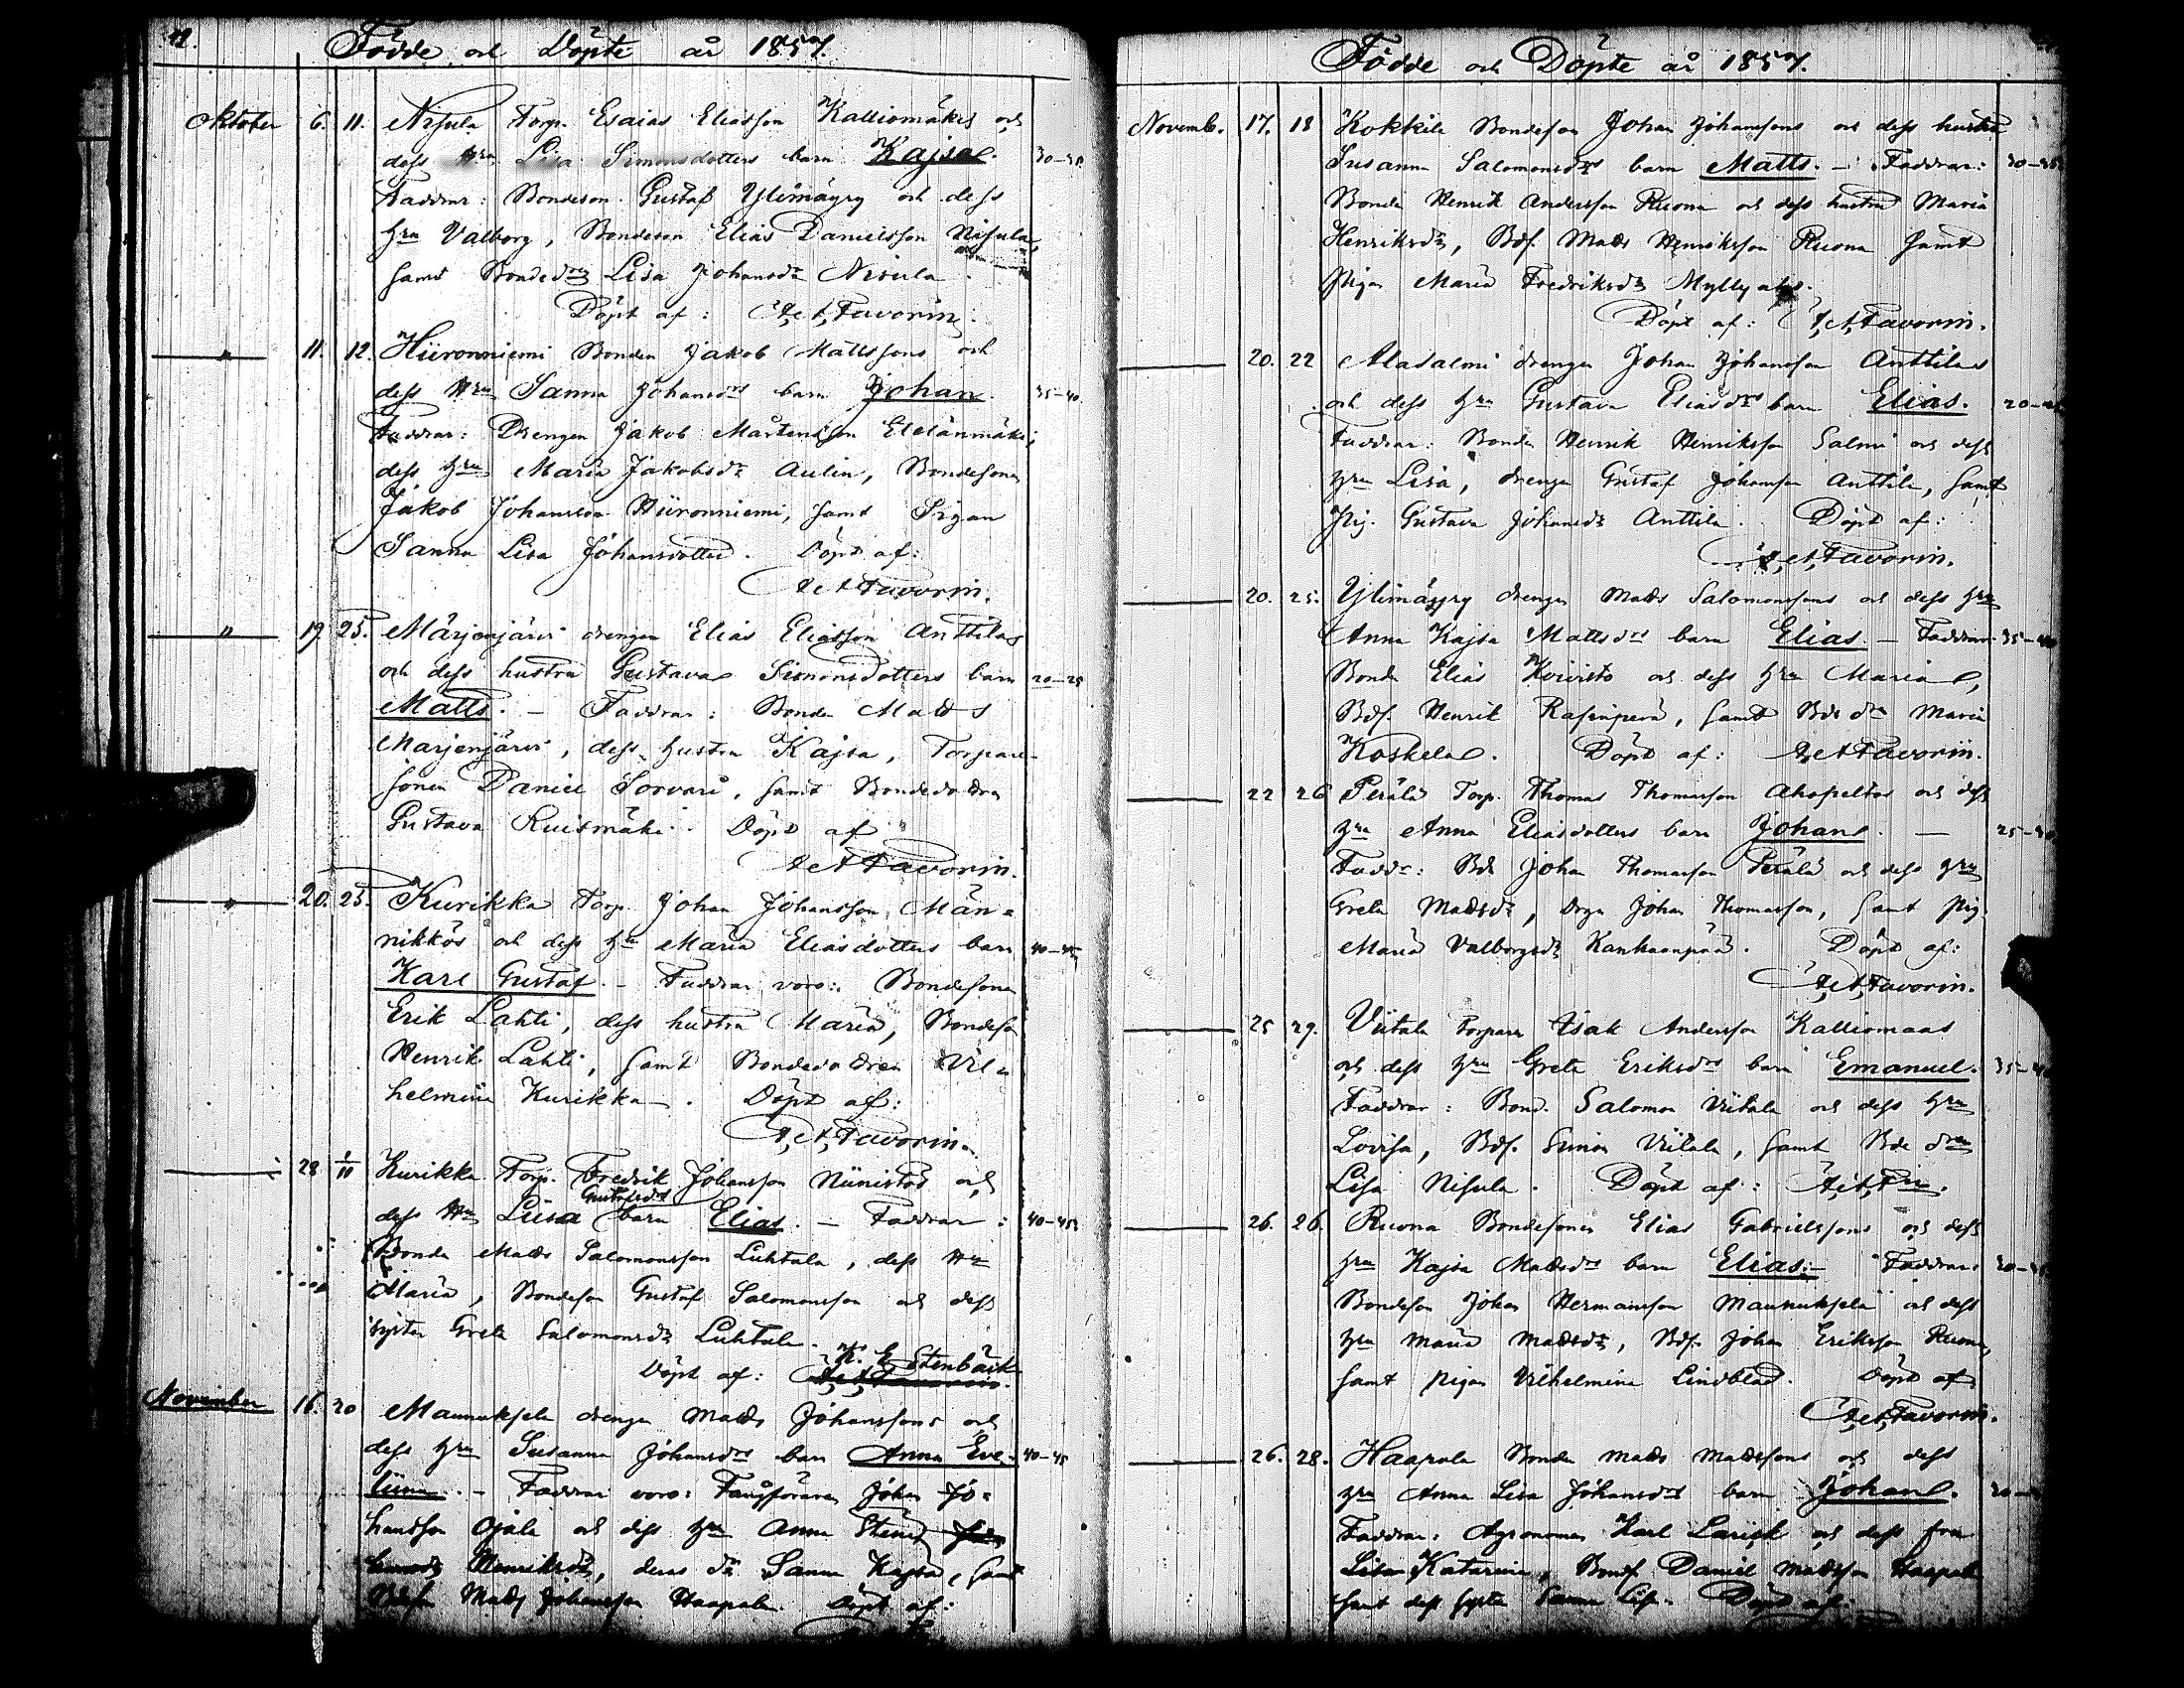 Födde och Döpte år 1857.
Oktober 6. 11. Nisula Torp. Esaias Eliasson Kalliomäkis och
dess Hru Lisa Simonsdotters barn Kajsa. 30-35
Faddrar: Bondeson Gustaf Ylimäyry och dess
hru Valborg, Bondeson Elias Danielsson Nisula
samt Bondedr Lisa Johansdr Nisula.
Döpt af: A. A. Favorin.
" 11. 12. Hiironniemi Bonden Jakob Mattssons och
dess Hru Sanna Johansdrs barn Johan. 35-40.
Faddrar: Drengen Jakob Mårtensson Etelänmäki,
dess hru Maria Jakobsdr Aulin, Bondesonen
Jakob Johansson Hiironniemi, samt Pigan
Sanna Lisa Johansdotter. Döpt af:
A. A. Favorin.
" 19 25. Marjenjärvi drengen Elias Eliasson Anttilas
och dess hustru Gustavas Simonsdotters barn 20-25
Matts. – Faddrar: Bonden Matts
Marjenjärvi, dess hustru Kajsa, Torpare-
sonen Daniel Sorvari, samt Bondedottren
Gustava Ruismäki. Döpt af
A. A. Favorin.
" 20. 25. Kurikka Torp. Johan Johansson Män=
nikkös och dess hru Maria Eliasdotters barn 40-45
Karl Gustaf. – Faddrar voro: Bondesonen
Erik Lahti, dess hustru Maria, Bondeson
Henrik Lahti, samt Bondedottren Vil=
helmina Kurikka. Döpt af:
A. A. Favorin.
28 1/11 Kurikka Torp. Fredrik Johansson Niinistös och
Gustafsdrs
dess Hru Lisa barn Elias. – Faddrar: 40-45
Bonden Matts Salomonsson Luhtala, dess Hru
Maria, Bondeson Gustaf Salomonsson och dess
syster Greta Salomonsdr Luhtala.
K. E. Stenbäck
Döpt af: A. A. Favorin.
November 16. 20 Maunuksela drengen Matts Johanssons och
dess hru Susanna Johansdrs barn Anna Eve- 40-45
liina. – Faddrar voro: Johan Jo=
hansson Ojala och dess hru Anna
Henriksdr, deras dr Sanna Kajsa, samt
Bdson Matts Johansson Haapala. Döpt af:
Födde och Döpte år 1857.
Novemb. 17. 18 Kokkila Bondeson Johan Johanssons och dess hustru
Susanna Salomonsdrs barn Matts. – Faddrar: 30-35
Bonden Henrik Andersson Ruona och dess hustru Maria
Henriksdr, Bds. Matts Henriksson Ruona samt
pigan Maria Fredriksdr Myllyaho.
Döpt af: A. A. Favorin.
20. 22 Alasalmi drengen Johan Johansson Anttilas
och dess hru Gustava Eliasdrs barn Elias. 20-25
Faddrar: Bonden Henrik Henriksson Salmi och dess
hru Lisa, drengen Gustaf Johansson Anttila, samt
Pig. Gustava Johansdr Anttila. Döpt af:
A. A. Favorin.
20. 25. Ylimäyry drengen Matts Salomonssons och dess hru
Anna Kajsa Mattsdrs barn Elias. – Faddrar 35-40
Bonden Elias Koivisto och dess hru Maria,
Bds. Henrik Rasinperä, samt Bdedr Maria
Koskela. Döpt af: A. A. Favorin.
22 26 Perälä Torp. Thomas Thomasson Ahopeltos och dess
hru Anna Eliasdotters barn Johan. – 25-30
Faddr: Bd Johan Thomasson Perälä och dess hru
Greta Mattsdr, drgn Johan Thomasson, samt pig.
Maria Valborgsdr Kankaanpää. Döpt af:
A. A. Favorin.
25 29. Viitala torparen Isak Andersson Kalliomaas
och dess hru Greta Eriksdrs barn Emanuel. 35-40
Faddrar: Bond. Salomon Viitala och dess hru
Lovisa, Bds. Simon Viitala, samt Bdedrn
Lisa Nisula. Döpt af: A. A. Fn.
26. 26. Ruona Bondesonen Elias Gabrielssons och dess
hru Kajsa Mattsdrs barn Elias. – Faddrar 30-35
Bondeson Johan Hermansson Maunuksela och dess
hru Maria Mattsdr, Bds. Johan Eriksson Ruona,
samt pigan Vilhelmina Lindblad. Döpt af
A. A. Favorin.
26. 28. Haapala Bonden Matts Mattssons och dess
hru Anna Lisa Johansdrs barn Johan.
Faddrar: Agronomen Karl och dess fru
Lisa Katarina, Bonds. Daniel Mattsson Haapala
samt dess syster Sanna Lisa. Döpt af: